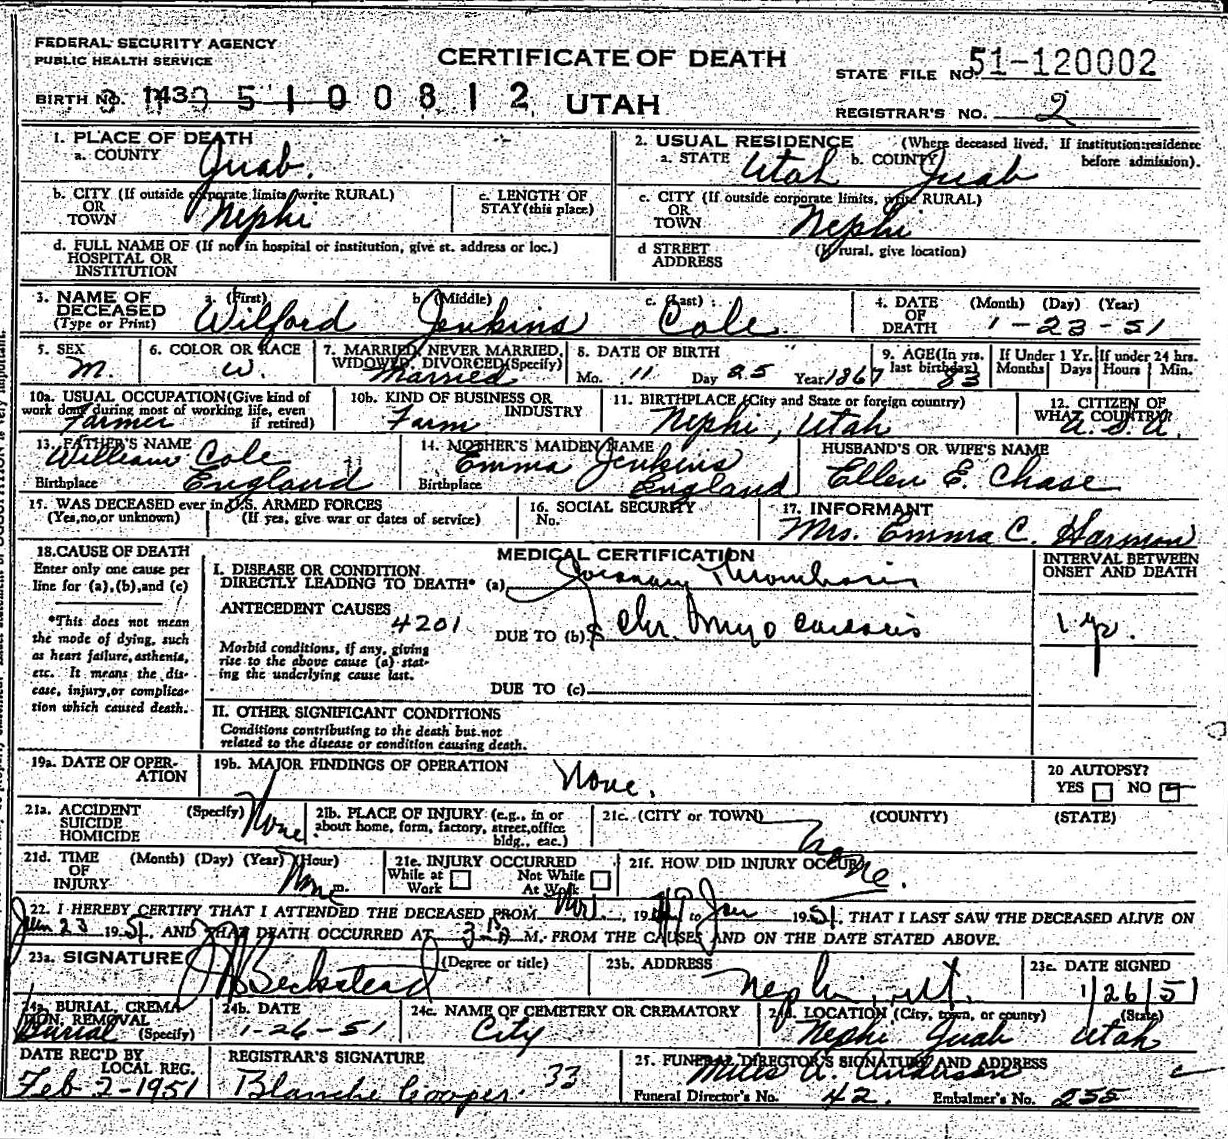 FEDERAL SECURITY AGENCY
PUBLIC HEALTH SERVICE
CERTIFICATE OF DEATH
STATE FILE NO. 51-120002
BIRTH NO. 1430 5 1 0 0 8 1 2 UTAH
REGISTRAR'S NO. 2
1. PLACE OF DEATH
a. COUNTY Juab.
2. USUAL RESIDENCE (Where deceased lived. If institution:residence before admission).
a. STATE Utah b. COUNTY Juab
b. CITY (If outside corporate limits, write RURAL)
OR
TOWN Nephi
c. LENGTH OF
STAY (this place)
c. CITY (If outside corporate limits, write RURAL)
OR
TOWN Nephi
d. FULL NAME OF (If not in hospital or institution, give st. address or loc.)
HOSPITAL OR
INSTITUTION
d STREET (If rural, give location)
ADDRESS
3. NAME OF
DECEASED
(Type or Print)
a. (First) b (Middle) c. (Last)
Wilford Jenkins Cole
4. DATE (Month) (Day) (Year)
OF
DEATH 1-23-51
5. SEX
M.
6. COLOR OR RACE
W.
7. MARRIED, NEVER MARRIED,
WIDOWED, DIVORCED(Specify)
Married
8. DATE OF BIRTH
Mo. 11 Day 25 Year 1867
9. AGE(In yrs.
last birthday) 83
If Under 1 Yr.
Months Days
If under 24 hrs.
Hours Min.
10a. USUAL OCCUPATION(Give kind of
work done during most of working life, even
if retired)
Farmer
10b. KIND OF BUSINESS OR
INDUSTRY
Farm
11. BIRTHPLACE (City and State or foreign country)
Nephi, Utah
12. CITIZEN OF
WHAT COUNTRY?
U.S.A.
13. FATHER'S NAME
William Cole
Birthplace England
14. MOTHER'S MAIDEN NAME
Emma Jenkins
Birthplace England
HUSBAND'S OR WIFE'S NAME
Ellen E. Chase
15. WAS DECEASED ever in U.S. ARMED FORCES
(Yes,no,or unknown) (If yes, give war or dates of service)
16. SOCIAL SECURITY
No.
17. INFORMANT
Mrs. Emma C. Harmon
18.CAUSE OF DEATH
Enter only one cause per
line for (a),(b),and (c)
*This does not mean
the mode of dying, such
as heart failure, asthenia,
etc. It means the dis-
ease, injury, or complica-
tion which caused death.
MEDICAL CERTIFICATION
I. DISEASE OR CONDITION
DIRECTLY LEADING TO DEATH* (a) Coronary Thrombosis
ANTECEDENT CAUSES
4201
DUE TO (b) Chr. Myo
Morbid conditions, if any, giving
rise to the above cause (a) stat-
ing the underlying cause last.
DUE TO (c)
II. OTHER SIGNIFICANT CONDITIONS
Conditions contributing to the death but not
related to the disease or condition causing death.
INTERVAL BETWEEN
ONSET AND DEATH
1 yr.
19a. DATE OF OPER-
ATION
19b. MAJOR FINDINGS OF OPERATION
None.
20 AUTOPSY?
YES NO
21a. ACCIDENT (Specify)
SUICIDE
HOMICIDE
None.
21b. PLACE OF INJURY (e.g., in or
about home, form, factory, street,office
bldg., eac.)
21c. (CITY or TOWN) (COUNTY) (STATE)
21d. TIME (Month) (Day) (Year) (Hour)
OF
INJURY None m.
21e. INJURY OCCURRED
While at Work Not While At Work
21f. HOW DID INJURY OCCUR?
None.
22. I HEREBY CERTIFY THAT I ATTENDED THE DECEASED FROM Nov., 19 to Jan 1951, THAT I LAST SAW THE DECEASED ALIVE ON
Jan 23 1951, AND THAT DEATH OCCURRED AT M. FROM THE CAUSES AND ON THE DATE STATED ABOVE.
23a. SIGNATURE (Degree or title)
Beckstead
23b. ADDRESS
Nephi, Ut.
23c. DATE SIGNED
1/26/51
24a. BURIAL, CREMA-
TION, REMOVAL
(Specify)
Burial
24b. DATE
1-26-51
24c. NAME OF CEMETERY OR CREMATORY
City
24d. LOCATION (City, town, or county) (State)
Nephi Juab Utah
DATE REC'D BY
LOCAL REG.
Feb 2-1951
REGISTRAR'S SIGNATURE
Blanche Cooper. 33
25. FUNERAL DIRECTOR'S SIGNATURE AND ADDRESS
Miles A. Anderson
Funeral Director's No. 42. Embalmer's No. 255